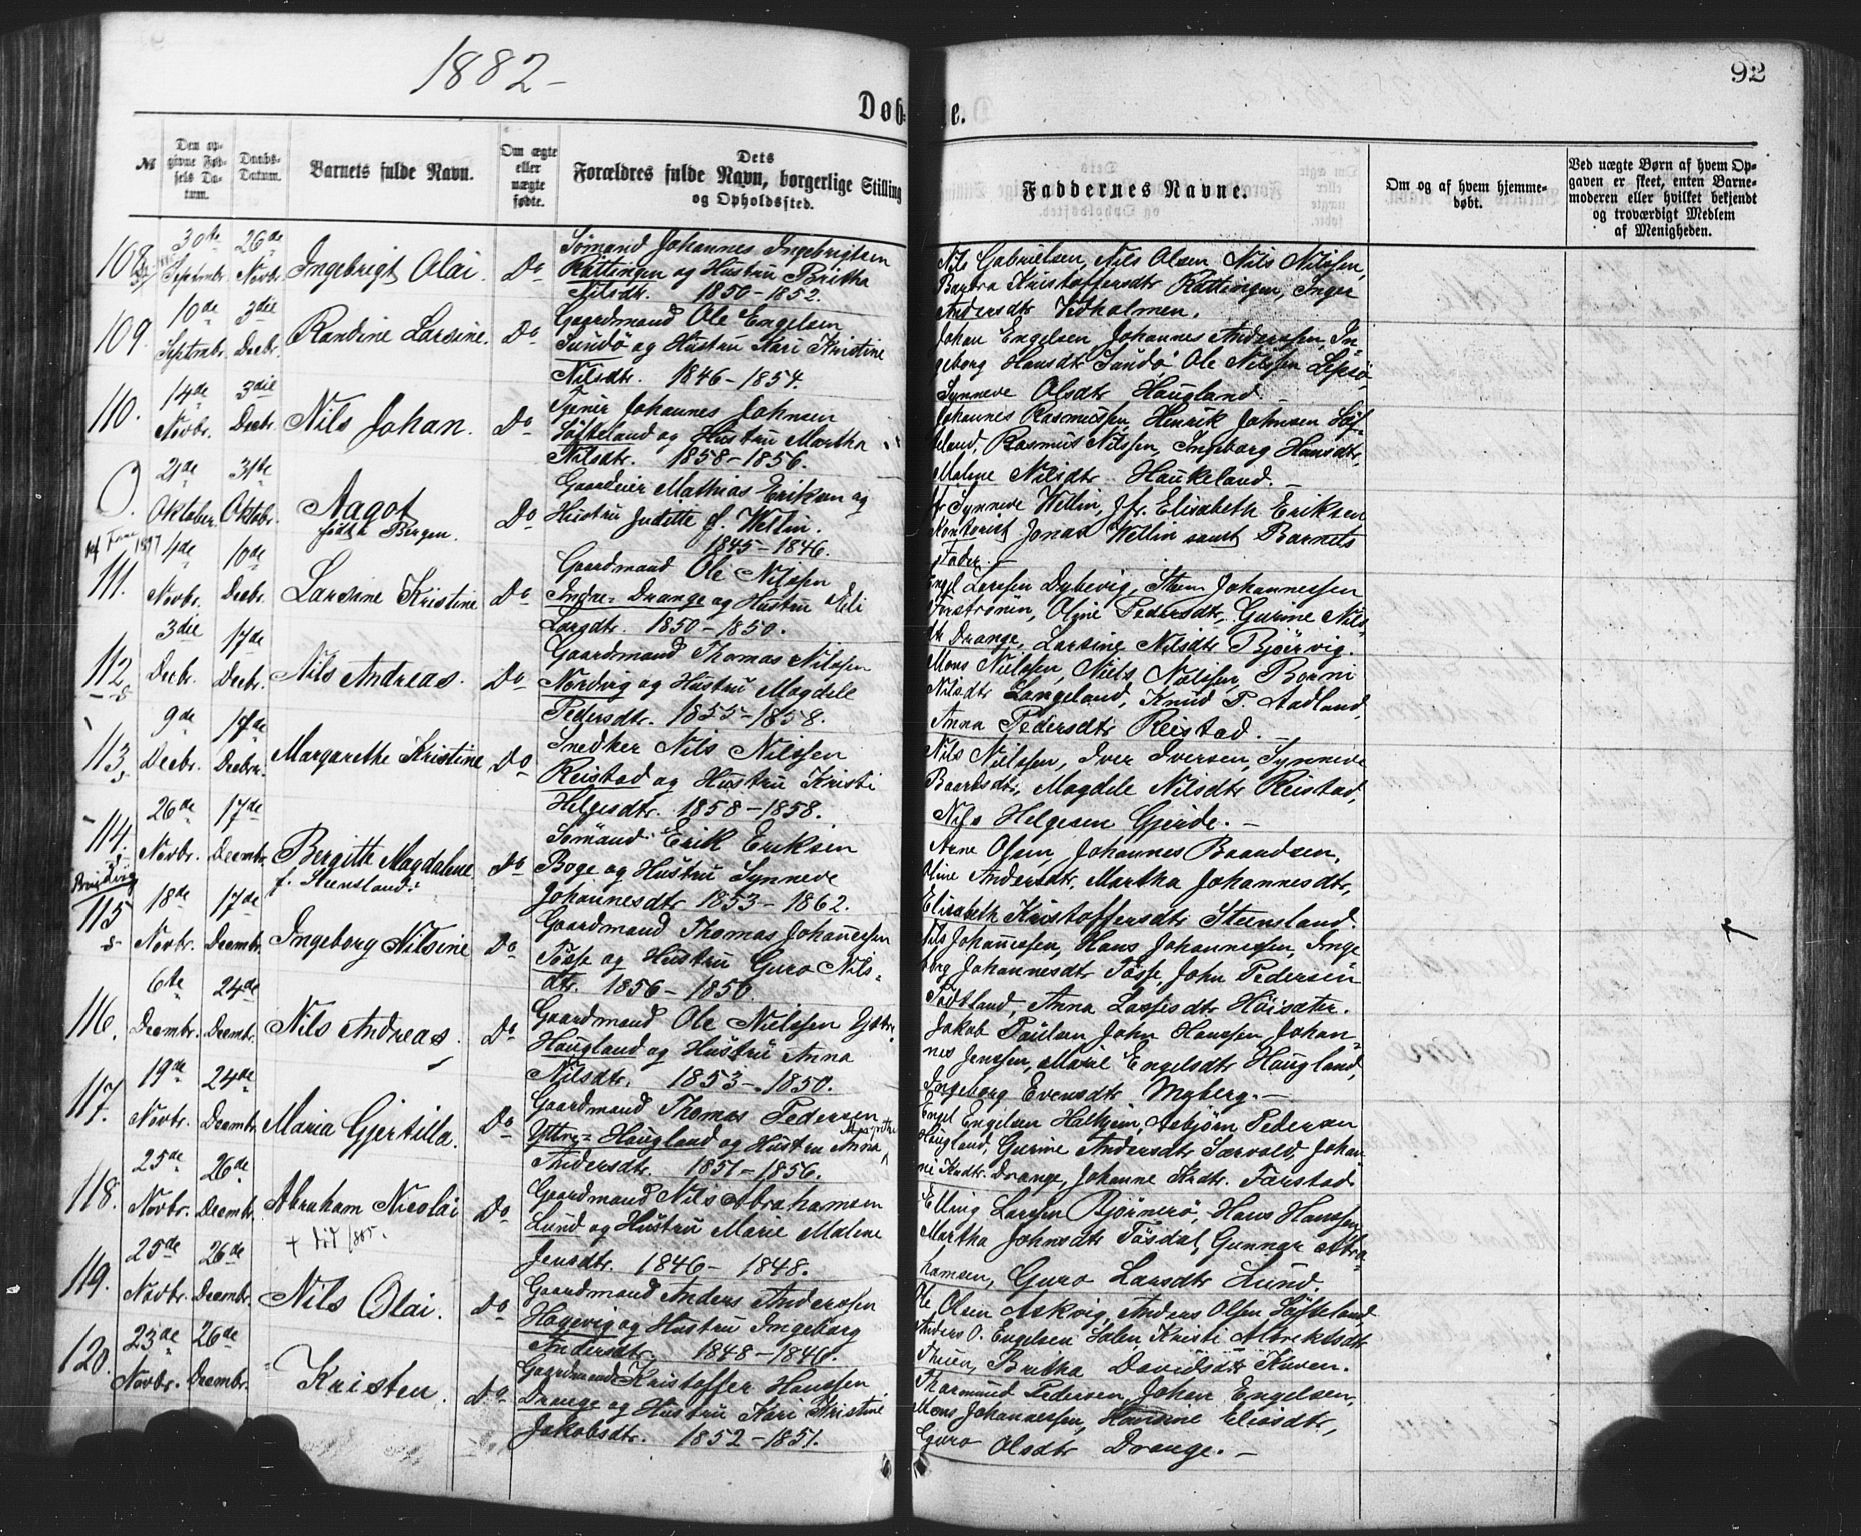 1882 -
92
Døb- te.
№
Den opgivne Fødsels Datum.
Daabs-Datum.
Barnets fulde Navn.
Om ægte eller uægte fødte.
Dets Forældres fulde Navn, borgerlige Stilling og Opholdssted.
Faddernes Navne.
Om og af hvem hjemmedøbt.
Ved uægte Børn af hvem Opgaven er skeet, enten Barnemoderen eller hvilket bekjendt og troværdigt Medlem af Menigheden.
108 30te Septembr. 26de Novbr. Ingebrigt Olai. Do
Sømand Johannes Ingebrigtsen
Røttingen og Hustru Britha
Nilsdtr. 1850 - 1852.
Nils Gabrielsen, Nils Olsen, Nils Nilssen,
Kristoffersdtr Røttingen, Inger
Andersdtr Vedholmen.
109. 10de Septmbr. 3die Decbr. Randine Larsine. Do
Gaardmand Ole Engelsen
Sundø og Hustru Kari Kristine
Nilsdtr. 1846 - 1854.
Johan Engelsen, Johannes Anderssen, In=
geborg Hansdtr Sundø, Ole Nilssen Lepsø
Synneve Olsdtr Haugland -
110. 14de Novbr. 3die Decbr. Nils Johan. Do
Tjener Johannes Johnsen
Søfteland og Hustru Martha
Nilsdtr. 1858 - 1856.
Johannes Rasmussen, Henrik Johnsen Søf-
teland, Rasmus Nilssen, Ingeborg Hansdtr,
Malene Nilsdtr Haukeland. -
0. 21de Oktober 31te Oktobr. Aagot Do
født i Bergen.
Gaardeier Mathias Eriksen og
Hustru Juditte f. Wellin.
1845 - 1846.
Fr Synneve Wellin, Jfr. Elisabeth Eriksen
Kontorist Jonas Wellin samt Barnets
Fader. -
1897
111. 4de Novbr. 10de Decbr. Larsine Kristine Do
Gaardmand Ole Nilssen
Indre= Drange og Hustru Eli
Larsdtr. 1850 - 1850.
Engel Larssen Dybevig, Johannessen
Oline Pedersdtr, Gurine Nils=
dtr Drange, Larsine Nilsdtr Bjørvig.
112 3die Decbr. 17de Decbr. Nils Andreas. Do
Gaardmand Thomas Nilssen
Nordvig og Hustru Magdele
Pedersdtr. 1855 - 1858.
Mons Nielssen, Niels Nielssen, Borni
Nilsdtr Langeland, Knud P. Aadland,
Anna Pedersdtr Reistad. -
113 9de Decbr. 17de Decbr. Margarethe Kristine Do
Snedker Nils Nilssen
Reistad og Hustru Kristi
Helgesdtr. 1858 - 1858.
Nils Nielssen, Iver Iversen, Synneve
Baardsdtr, Magdele Nilsdtr Reistad,
Nils Helgesen Gjerde. -
114. 26de Novbr. 17de Decmbr. Bergitte Magdalene Do
f. Steensland:
Sømand Erik Eriksen
Boge og Hustru Synneve
Johannesdtr 1853 - 1862.
Arne Olsen, Johannes Baardsen,
Oline Andersdtr, Martha Johannesdtr,
Elisabeth Kristoffersdtr Steensland.
115 18de Novbr. 17de Decmbr. Ingeborg Nilsine Do
Gaardmand Thomas Johannessen
Tøsse og Hustru Guro Nils=
dtr. 1856 - 1850.
Nils Johannessen, Hans Johannessen, Inge
borg Johannesdtr Tøsse, John Pedersen
Anna Lassesdtr Høisæter.
116. 6te Decmbr. 24de Decmbr. Nils Andreas. Do
Gaardmand Ole Nielssen Yttre
Haugland og Hustru Anna
Nilsdtr. 1853 - 1850.
Jakob Paulsen, John Hanssen, Johan=
nes Jenssen, Engelsdtr Haugland,
Ingeborg Evensdtr Myberg. -
117. 19de Novbr. 24de Decmbr. Maria Gjertilla. Do
Gaardmand Thomas Pedersen
Yttre= Haugland og Hustru Anna
Andersdtr. 1851 - 1856.
Engel Engelsen Halhjem, Asbjørn Pedersen
Haugland, Gurine Andersdtr Særvold, Johan
ne Kndtr. Drange, Johanne Kndtr. Færstad
118. 25de Novbr. 26de Decmbr. Abraham Nicolai Do
† 1885.
Gaardmand Nils Abrahamsen
Lund og Hustru Marie Malene
Jensdtr. 1846 - 1848.
Elling Larsen Bjørnerø, Hans Hanssen
Martha Johnsdtr Tøsdal, Gunnar Abra
hamsen, Guro Larsdtr Lund.
119. 25de Novbr. 26de Decmbr. Nils Olai. Do
Gaardmand Anders Anderssen
Hagevig og Hustru Ingeborg
Andersdtr. 1848 - 1846.
Ole Olsen Askvig, Anders Olsen Søfteland
Anders O. Engelsen Kristi
Britha Davidsdtr Kuven.
120. 23de Novbr. 26de Decmbr. Kristen. Do
Gaardmand Kristoffer Hanssen
Drange og Hustru Kari Kristine
Jakobsdtr. 1852 - 1851.
Thormund Pedersen, Johan Engelsen,
Mons Johannessen, Hansine Eliasdtr,
Guro Olsdtr Drange. -